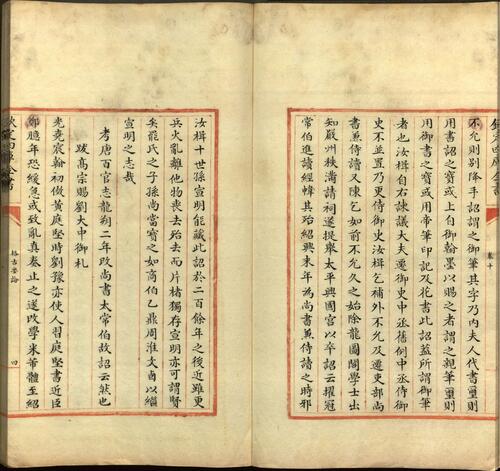 卷十
不允則别降手詔謂之御筆其字乃内夫人代書璽則
用書詔之寶或上自御翰墨以賜之者謂之親筆璽則
用御書之寶或用帝筆印記及花書此詔蓋所謂御筆
者也汝楫自右諫議大夫遷御史中丞舊例中丞侍御
史不並置乃更侍御史汝楫乞補外不允及遷吏部尚
書兼侍讀又陳乞如前不允久之始除龍圖閣學士出
知嚴州秩滿請祠遂提舉太平興國宫以卒詔云擢冠
常伯進讀經幃其殆紹興末年為尚書兼侍讀之時邪
汝楫十世孫宣明能藏此詔於二百餘年之後近雖更
兵火亂離他物喪去殆去而片楮獨存宣明亦可謂賢
矣羅氏之子孫尚當寶之如商伯乙鼎周淮父卣以繼
宣明之志哉
考唐百官志龍朔二年改尚書太常伯故詔云然也
跋高宗賜劉大中御札
光堯宸翰初倣黄庭堅時劉豫亦使人習庭堅書近臣
鄭億年恐緩急或致亂真奏止之遂改學米芾體至紹
欽定四庫全書
格古要論
四